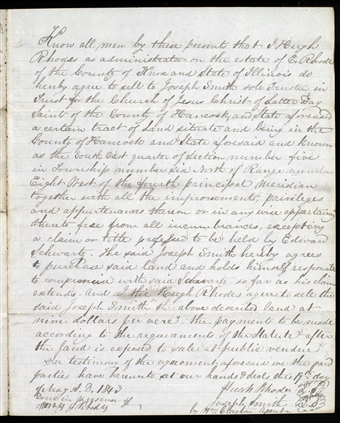 Know all men by these presents that I Hugh
Rhods as administrator on the estate of E Rhods
of the County of Knox and State of Illinois do
hereby agree to sell to Joseph Smith sole Trustee in
Trust for the Church of Jesus Christ of Latter Day
Saints of the County of Hancock, and State aforesaid
a certain tract of Land situate and being in the
County of Hancock and State aforesaid and known
as the South East quarter of Section number five
in Township number six North of Range number
Eight West of the fourth principal Meridian
together with all the improvements, privileges
and appurtenances thereon or in any wise appertaining
thereto free from all incumbrances, excepting
a claim or title professed to be held by Edward
Schwartz. The said Joseph Smith hereby agrees
to purchase said land and holds himself responsible
to compromise with said Schwartz so far as his claim
extends. And I the Hugh Rhods agree to sell the
said Joseph Smith the above described land at
nine dollars per acre. the payments to be made
according to the requirements of the Statute after
the land is exposed to sale at public vendue
In testimony of the agreement entered we the said
parties have hereunto set our hands & seal this 12th day
of May A. D. 1843
Hugh Rhods
in presence of
Joseph Smith
by Wm Clayton Agent